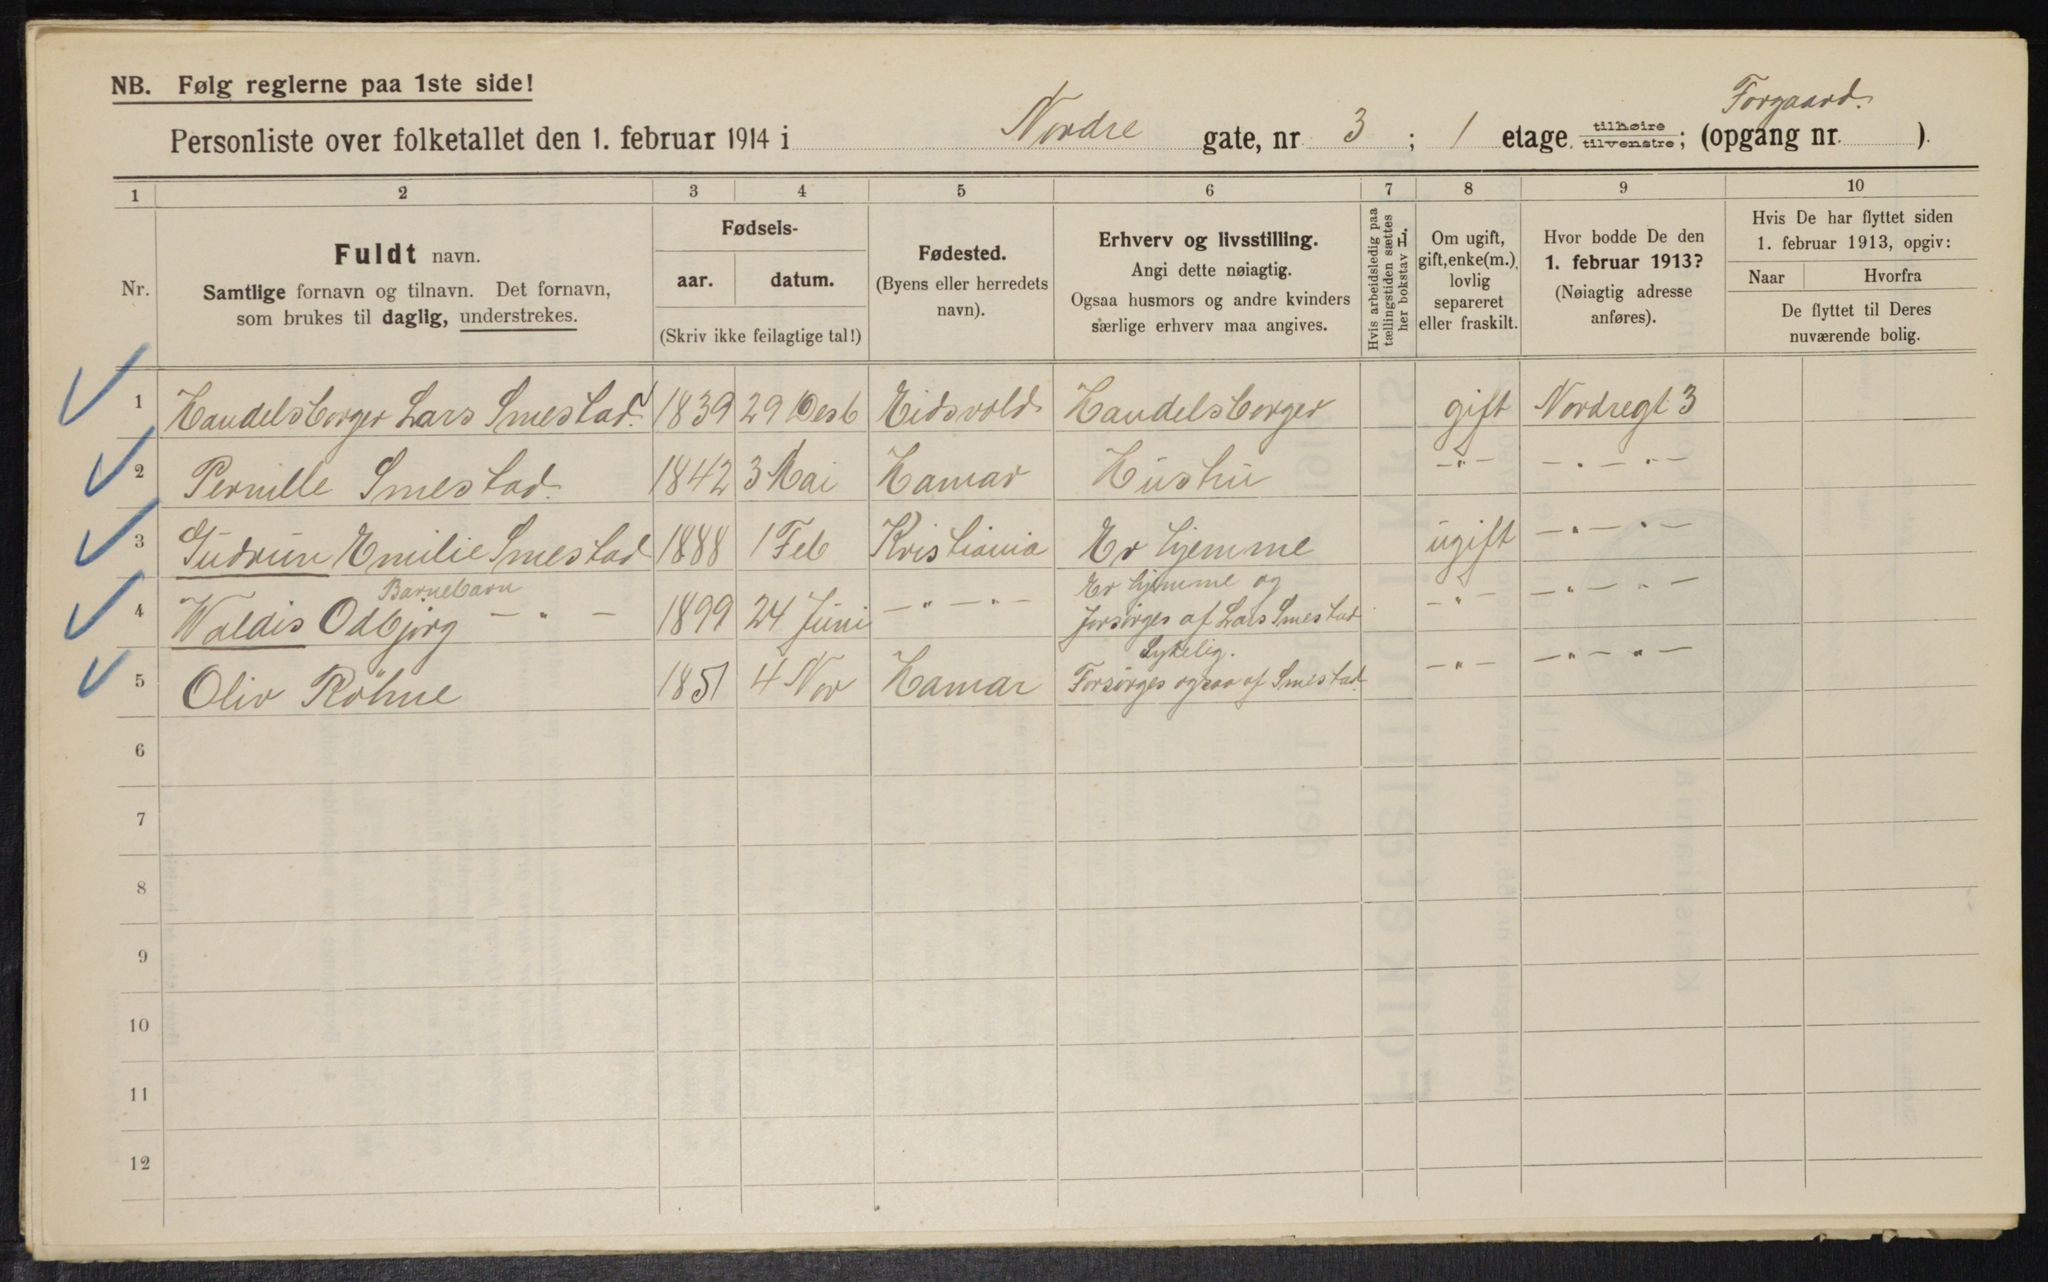 NB. Følg reglerne paa 1ste side!
Forgaard.
Personliste over folketallet den 1. februar 1914 i Nordre gate, nr 3 ; 1 etage tilhøire tilvenstre ; (opgang nr. ).
1 2 3 4 5 6 7 8 9 10
Nr.
Fuldt navn.
Samtlige fornavn og tilnavn. Det fornavn,
som brukes til daglig, understrekes.
Fødsels-
aar. datum.
(Skriv ikke feilagtige tal!)
Fødested.
(Byens eller herredets
navn).
Erhverv og livsstilling.
Angi dette nøiagtig.
Ogsaa husmors og andre kvinders
særlige erhverv maa angives.
Hvis arbeidsledig paa
tællingstiden sættes
her bokstav L.
Om ugift,
gift, enke(m.),
lovlig
separeret
eller fraskilt.
Hvor bodde De den
1. februar 1913?
(Nøiagtig adresse
anføres).
Hvis De har flyttet siden
1. februar 1913, opgiv:
Naar Hvorfra
De flyttet til Deres
nuværende bolig.
1 Handelsborger Lars Smestad. 1839 29 Desb Eidsvold Handelsborger gift Nordregt 3
2 Pernille Smestad. 1842 3 Mai Hamar Hustru —"— — " — " —
3 Gudrun Emilie Smestad 1888 1 Feb Kristiania Er hjemme ugift — " — " —
Barnebarn Er hjemme og
4 Waldis Odbjørg — " — 1899 24 Juni — " — " — forsørges af Lars Smestad —"— — " — " —
Sykelig.
5 Oliv Röhne 1851 4 Nov Hamar Forsørges ogsaa af Smestad. —"— — " — " —
6
7
8
9
10
11
12